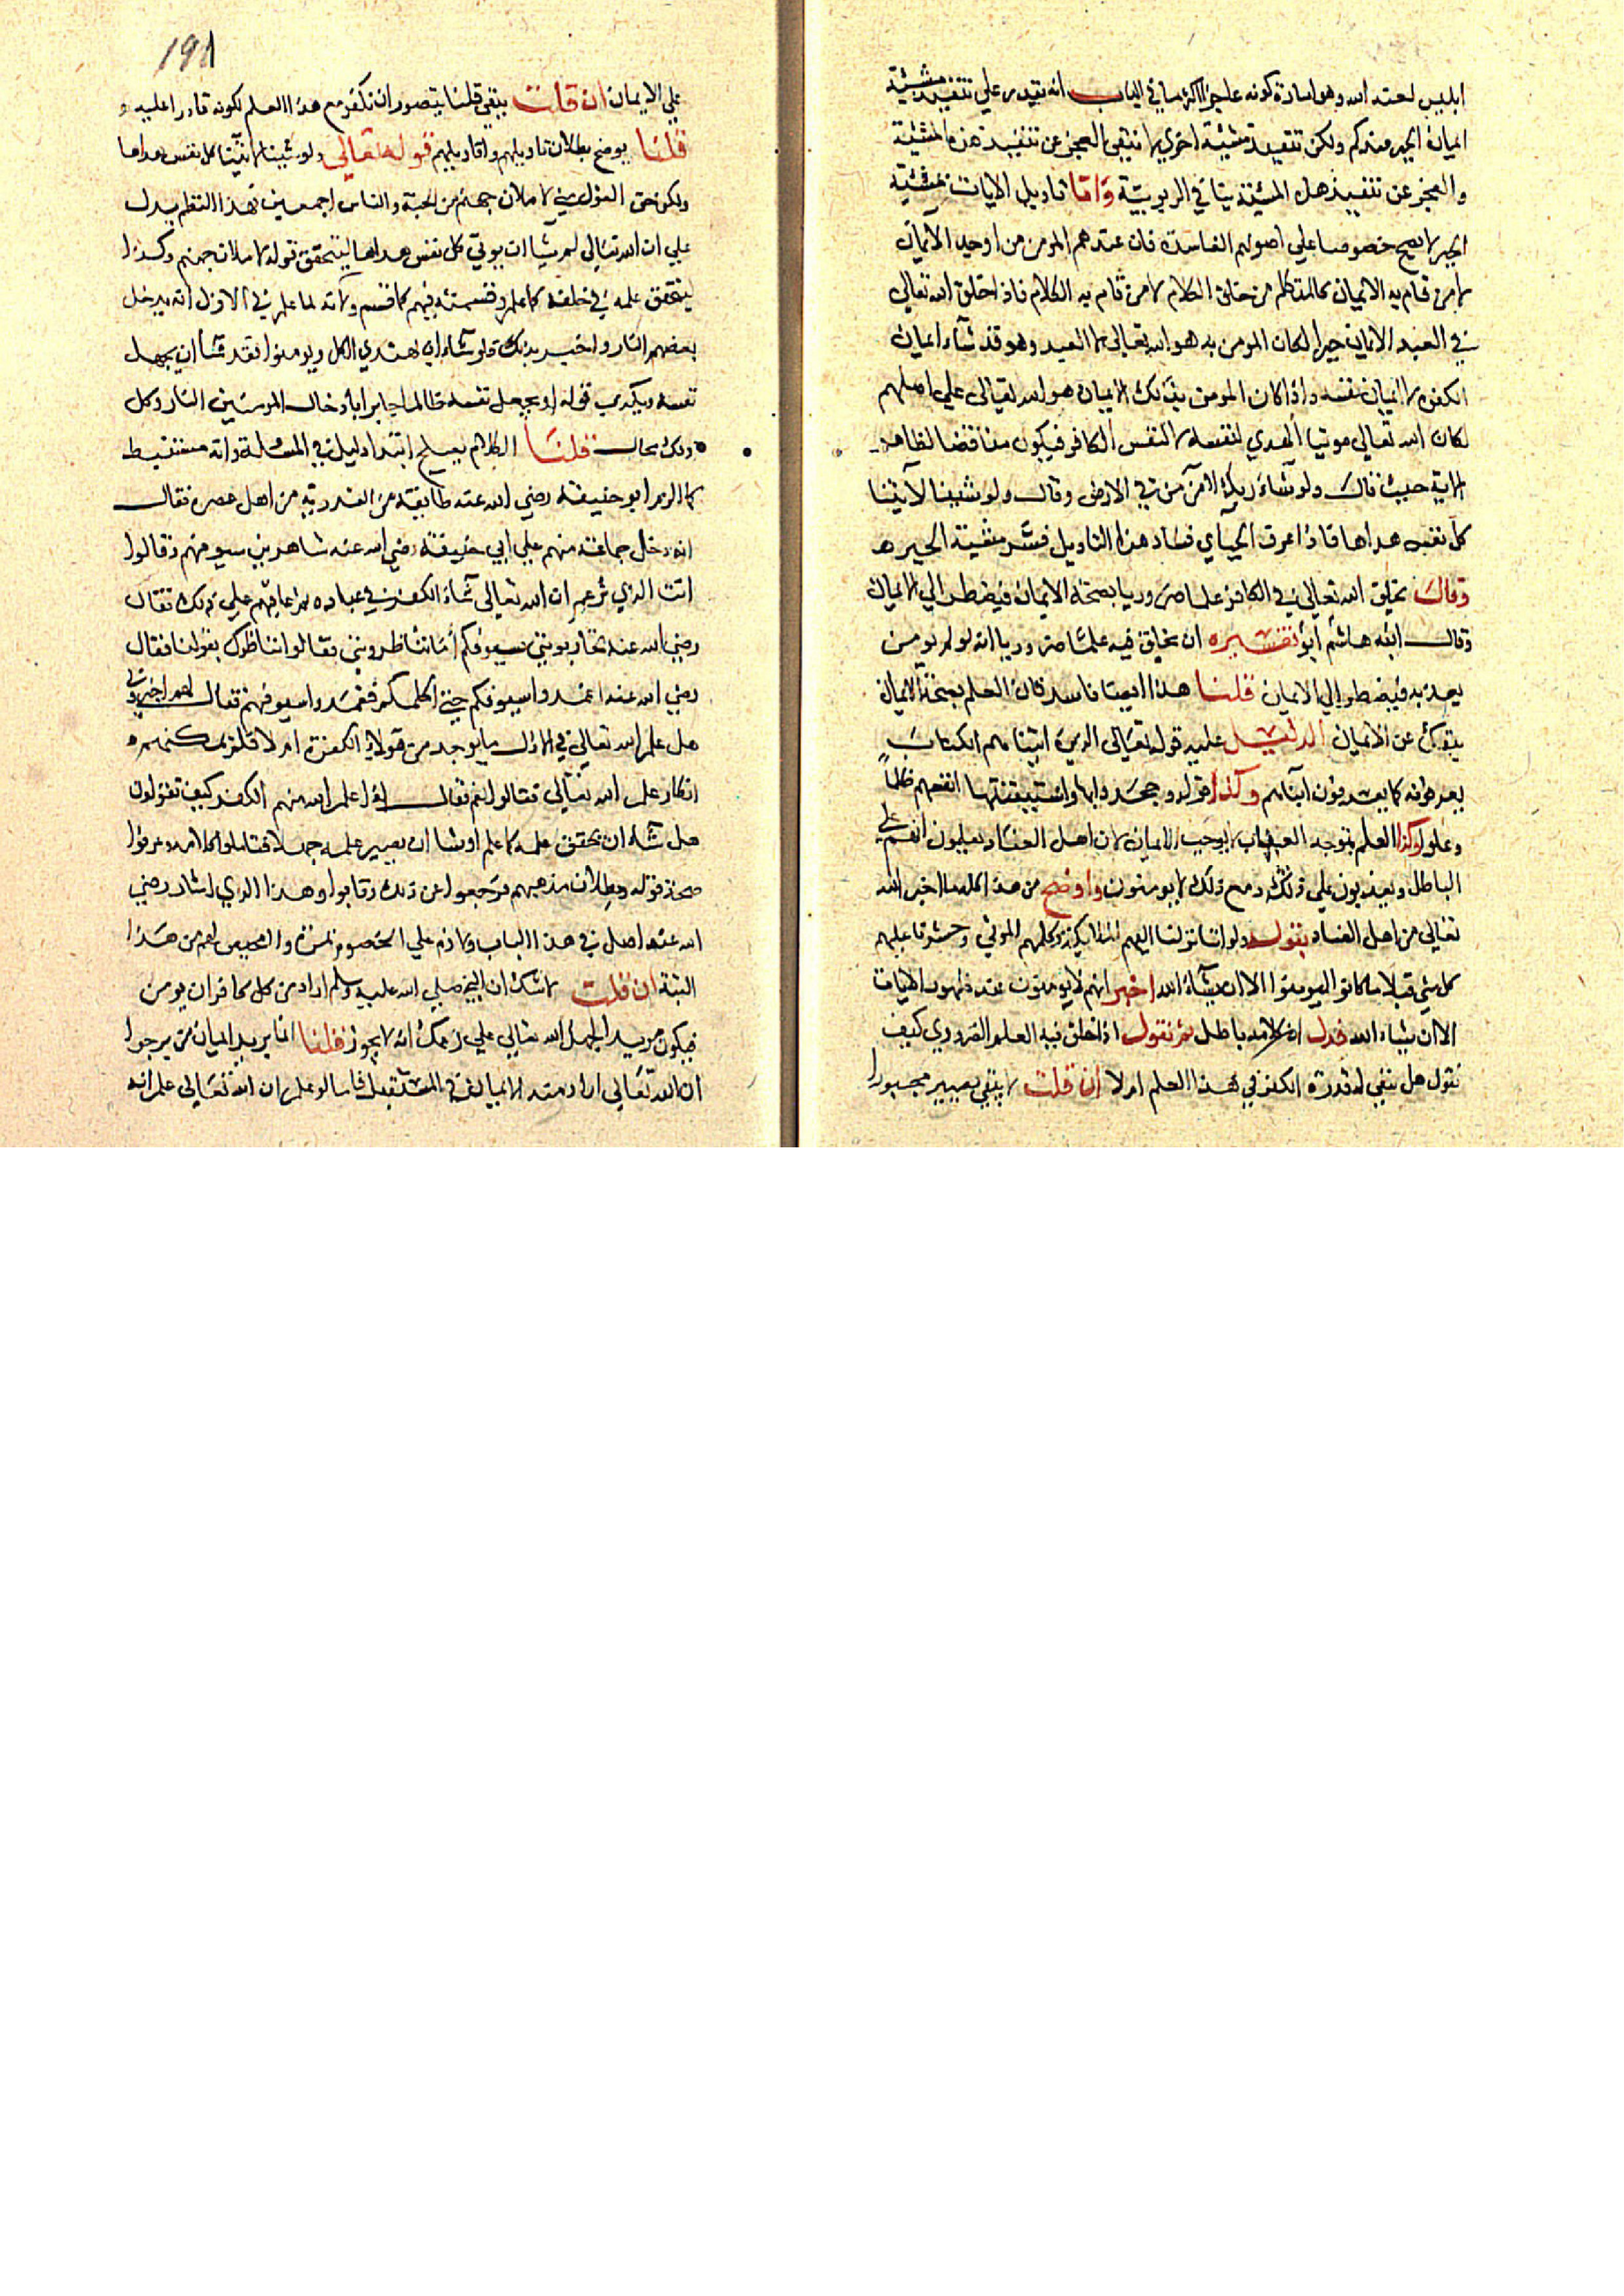 ابليس لعنه الله وهو امارة كونه عاجزا كما في الباب انه يقدر علي تنفيذ مشيئة
ايمان الجبر منكم ولكن تنفيذ مشيئة اخري لا ينفي العجز عن تنفيذ هذه المشيئة
والعجز عن تنفيذ هذه المشيئة ينافي الربوبية واما تاويل الايات بمشيئة
الجبر لا يصح خصوصا علي اصولهم الفاسدة فان عندهم المومن من اوجد الايمان
لا من قام به الايمان كالمتكلم من خلق الكلام لا من قام به الكلام فاذا خلق الله تعالي
في العبد الايمان جبرا لكان المومن به هو الله تعالي لا العبد وهو قد شاء ايمان
الكفرة لا ايمان نفسه واذا كان المومن بذلك الايمان هو الله تعالي علي اصلهم
لكان الله تعالي موتيا الهدي لنفسه لا لنفس الكافر فيكون مناقضا لظاهر
الاية حيث قال ولو شاء ربك لامن من في الارض وقال ولو شئنا لاتينا
كل نفس هداها فاذا عرف الجبائي فساد هذا التاويل فسر مشيئة الجبر
وقال يخلق الله تعالي في الكافر علما ضروريا بصحة الايمان فيضطر الي الايمان
وقال ابنه هاشم ابو تفسيره ان يخلق فيه علما ضروريا انه لو لم يومن
يعذبه فيضطر الي الايمان قلنا هذا ايضا فاسد فان العلم بصحة الايمان
ينفك عن الايمان الدليل عليه قوله تعالي الذين اتيناهم الكتاب
يعرفونه كما يعرفون ابناهم وكذا قوله وجحدوا بها واستيقنتها انفسهم ظلما
وعلوا وكذا العلم بتوجه العقاب لا يوجب الايمان لان اهل العناد يعلمون انهم علي
الباطل ويعذبون علي ذلك ومع ذلك لا يومنون واوضح من هذا كله ما اخبر الله
تعالي من اهل العناد بقوله ولو اننا نزلنا اليهم الملايكة وكلمهم الموتي وحشرنا عليهم
كل شي قبلا ما كانوا ليومنوا الا ان يشاء الله اخبر انهم لا يومنون عند ظهور الايات
الا ان يشاء الله فدل ان كلامه باطل ثم نقول اذا خلق فيه العلم الضروري كيف
نقول هل تنفي له قدرة الكفر في هذا العلم ام لا ان قلت لا يبقي يصير مجبورا
191
علي الايمان ان قلت يبقي قلنا يتصور ان نكفر مع هذا العلم لكونه قادرا عليه
قلنا يوضح بطلان تاويلهم واقاويلهم قوله تعالي ولو شئنا لاتينا كل نفس هداها
ولكن حق القول مني لاملان جهنم من الجنة والناس اجمعين هذا النظم يدل
علي ان الله تعالي لم يشا ان يوتي كل نفس هداها ليتحقق قوله لاملان جهنم وكذا
ليتحقق علمه في خلقه كما علم وقسمته فيهم كما قسم ولانه لما علم في الازل انه يدخل
بعضهم النار واخبر بذلك ولو شاء ان يهتدي الكل ويومنوا فقد شا ان يجهل
نفسه ويكذب قوله او يجعل نفسه ظالما جابرا بادخال المومنين النار وكل
ذلك محال قلنا الكلام يصلح ابتدا دليل في المسئلة وانه مستنبط
كما الزم ابو حنيفة رضي الله عنه طايفة من القدرية من اهل عصره فقال
انه دخل جماعة منهم علي ابي حنيفة رضي الله عنه شاهرين سيوفهم وقالوا
انت الذي تزعم ان الله تعالي شاء الكفر في عباده ثم يعاقبهم علي ذلك فقال
رضي الله عنه تحاربونني بسيوفكم ام تناظرونني فقالوا نناظرك بقولنا فقال
رضي الله عنه اغمدوا سيوفكم حتي اكلمكم فغمدوا سيوفهم فقال لهم اخبروني
هل علم الله تعالي في الازل ما يوجد من هولاء الكفرة ام لا فلم يمكنهم
انكار علم الله تعالي فقالوا نعم فقال اذا علم الله منهم الكفر كيف تقولون
هل شاء ان يحقق علمه كما علم او شا ان يصير علمه جهلا فتاملوا كلامه وعرفوا
صحة قوله وبطلان مذهبهم فرجعوا عن ذلك وتابوا وهذا الذي اشار رضي
الله عنه اصل في هذا الباب ولازم علي الخصوم لا محيص لهم من هذا
البتة ان قلت لا شك ان النبي صلي الله عليه وسلم اراد من كل كافر ان يومن
فيكون مريد الجهل الله تعالي علي زعمك انه لا يجوز قلنا انما يريد ايمان من يرجوا
ان الله تعالي اراد منه الايمان في المستقبل فاما لو علم ان الله تعالي علم انه